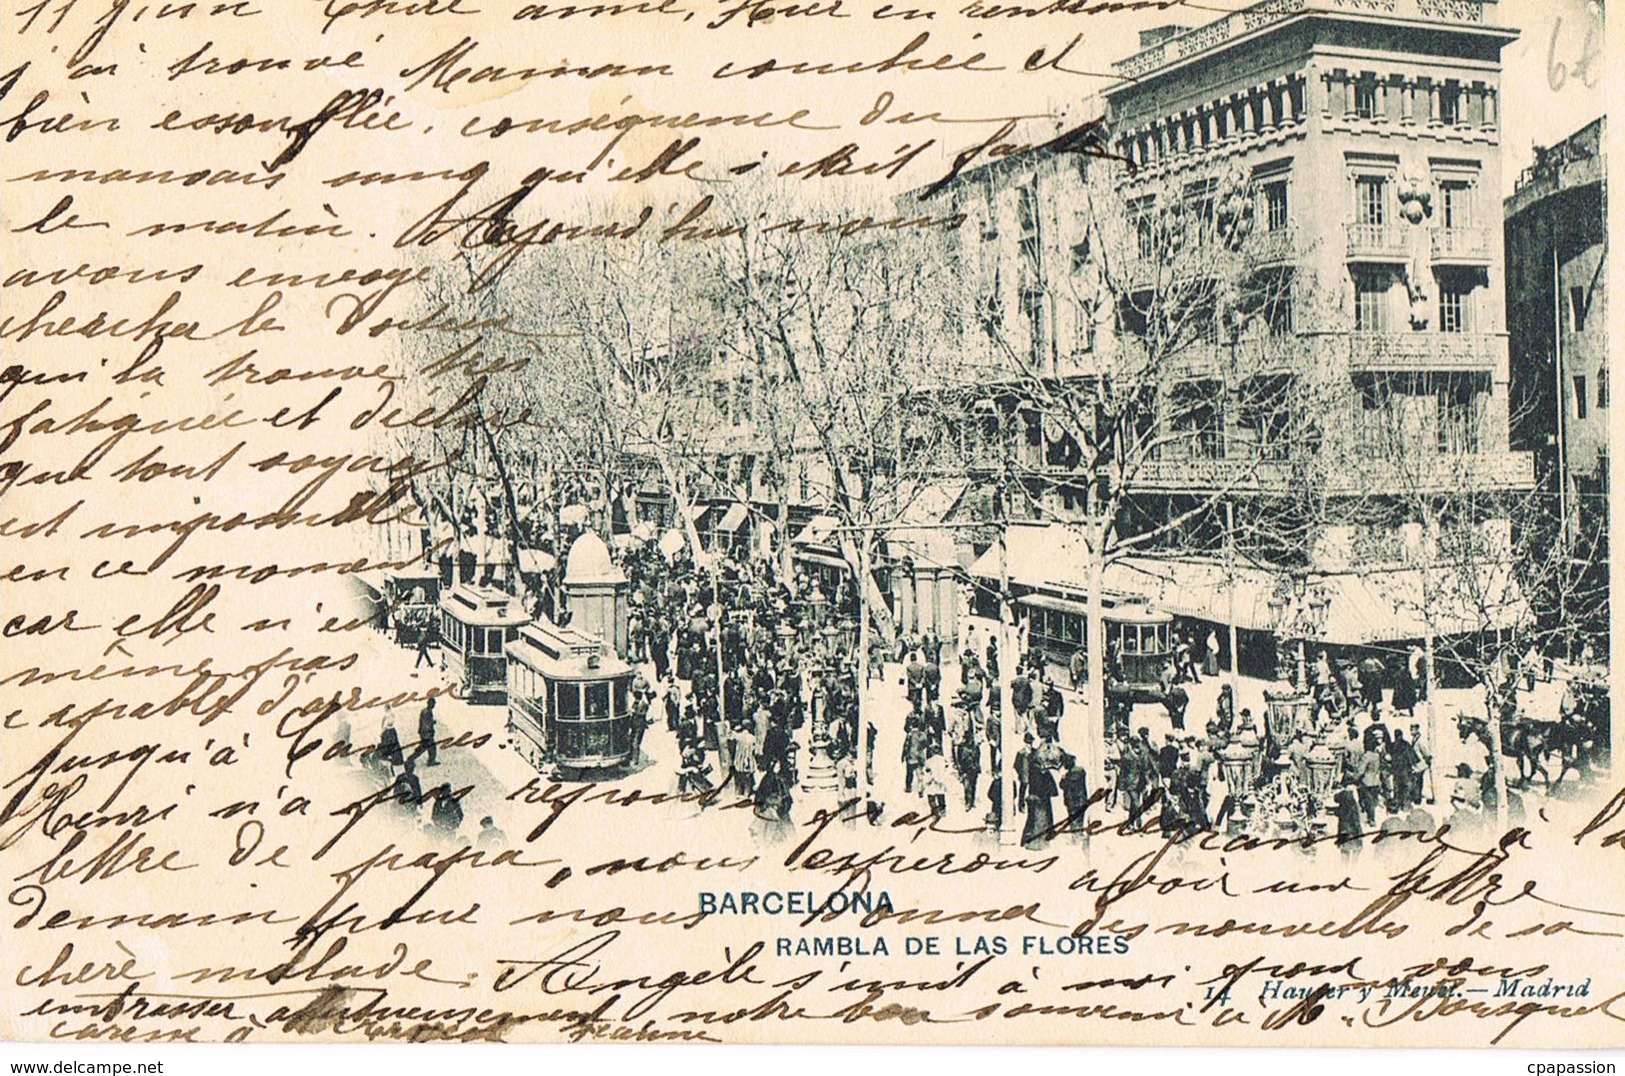 11 juin Chère amie, Hier en rentrant
j'ai trouvé Maman couchée et
bien essoufflée, conséquence du
mauvais sang qu'elle s'était fait
le matin. Aujourd'hui nous
avons envoyé
chercher le Docteur
qui la trouve très
fatiguée et déclare
que tout voyage
est impossible
en ce moment
car elle n'est
même pas
capable d'arriver
jusqu'à Cannes.
Henri n'a pas répondu par télégramme à la
lettre de papa, nous espérons avoir une lettre
demain pour nous donner des nouvelles de sa
chère malade. Angèle s'unit à moi pour vous
embrasser affectueusement, notre bon souvenir à Mr Bousquet
caresse à Jeanne
6€
BARCELONA
RAMBLA DE LAS FLORES
14 Hauser y Menet.—Madrid
www.delcampe.net
cpapassion